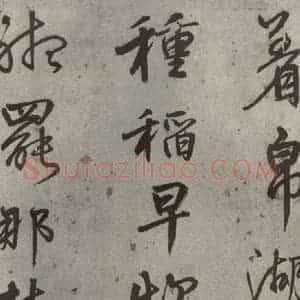 着帛湖
種稻早
罷那
Shufaziliao.COM